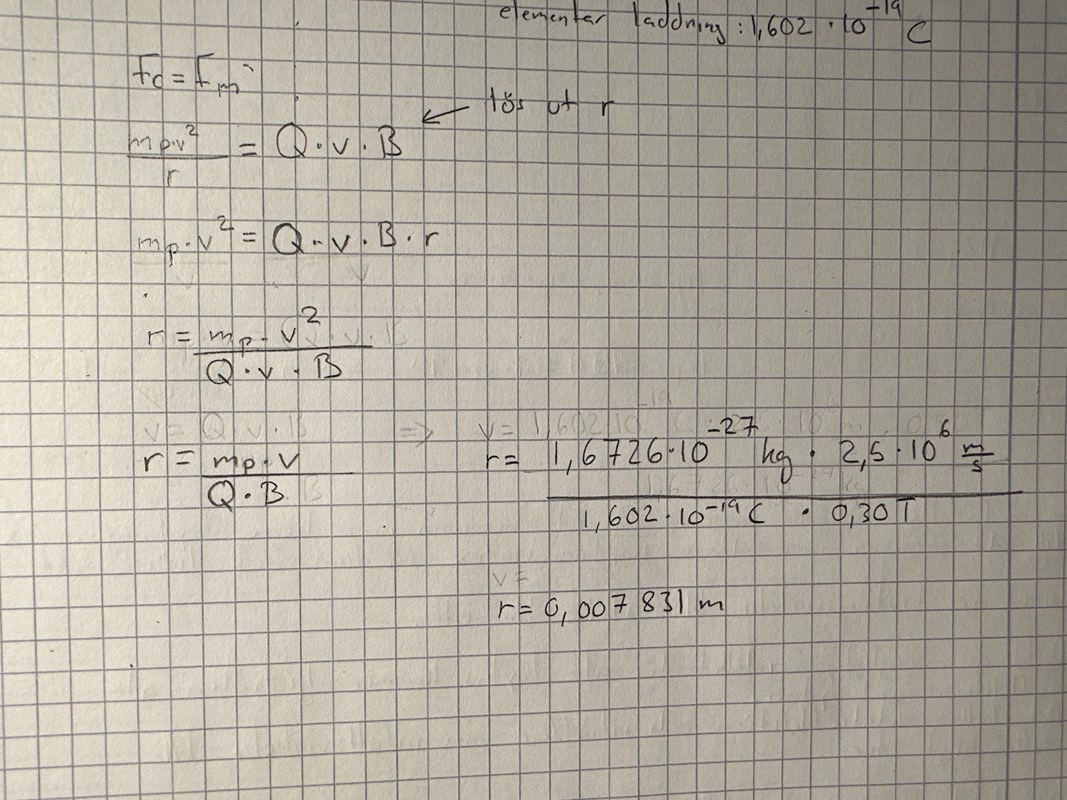 elementar laddning : 1,602 · 10⁻¹⁹ C
Fc = Fm
mp·v²/r = Q · v · B ← lös ut r
mp · v² = Q · v · B · r
r = mp · v² / Q · v · B
r = mp · v / Q · B => r = 1,6726 · 10⁻²⁷ kg · 2,5 · 10⁶ m/s / 1,602 · 10⁻¹⁹ C · 0,30 T
r = 0,007831 m